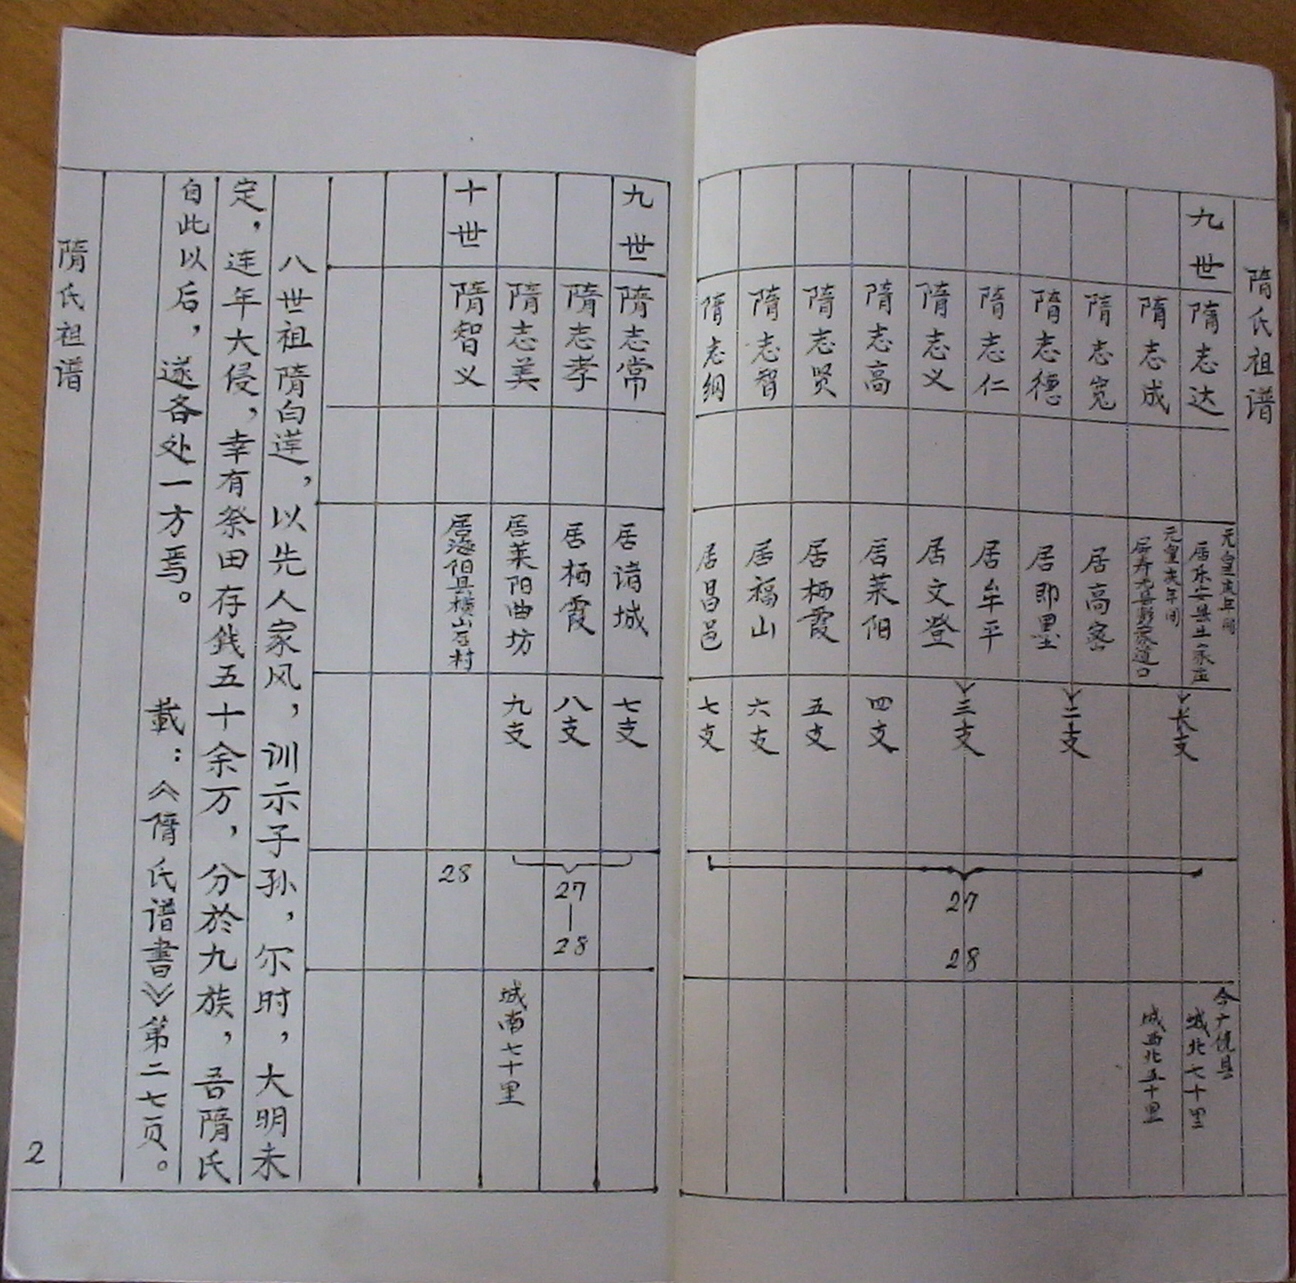 隋氏祖谱
九世
隋志达
元皇末年间
居乐安县
长支
今广饶县
城北七十里
隋志成
元皇末年间
居寿光县
道口
城西北五十里
隋志宽
居高密
二支
隋志德
居即墨
隋志仁
居牟平
三支
隋志义
居文登
隋志高
居莱阳
四支
隋志贤
居栖霞
五支
隋志智
居福山
六支
隋志纲
居昌邑
七支
27
28
九世
隋志常
居诸城
七支
隋志孝
居栖霞
八支
27
—
28
隋志美
居莱阳曲坊
九支
城南七十里
十世
隋智义
28
八世祖隋白莲，以先人家风，训示子孙，尔时，大明未
定，连年大侵，幸有祭田存钱五十余万，分於九族，吾隋氏
自此以后，遂各处一方焉。 載：《隋氏谱書》第二七页。
隋氏祖谱
2